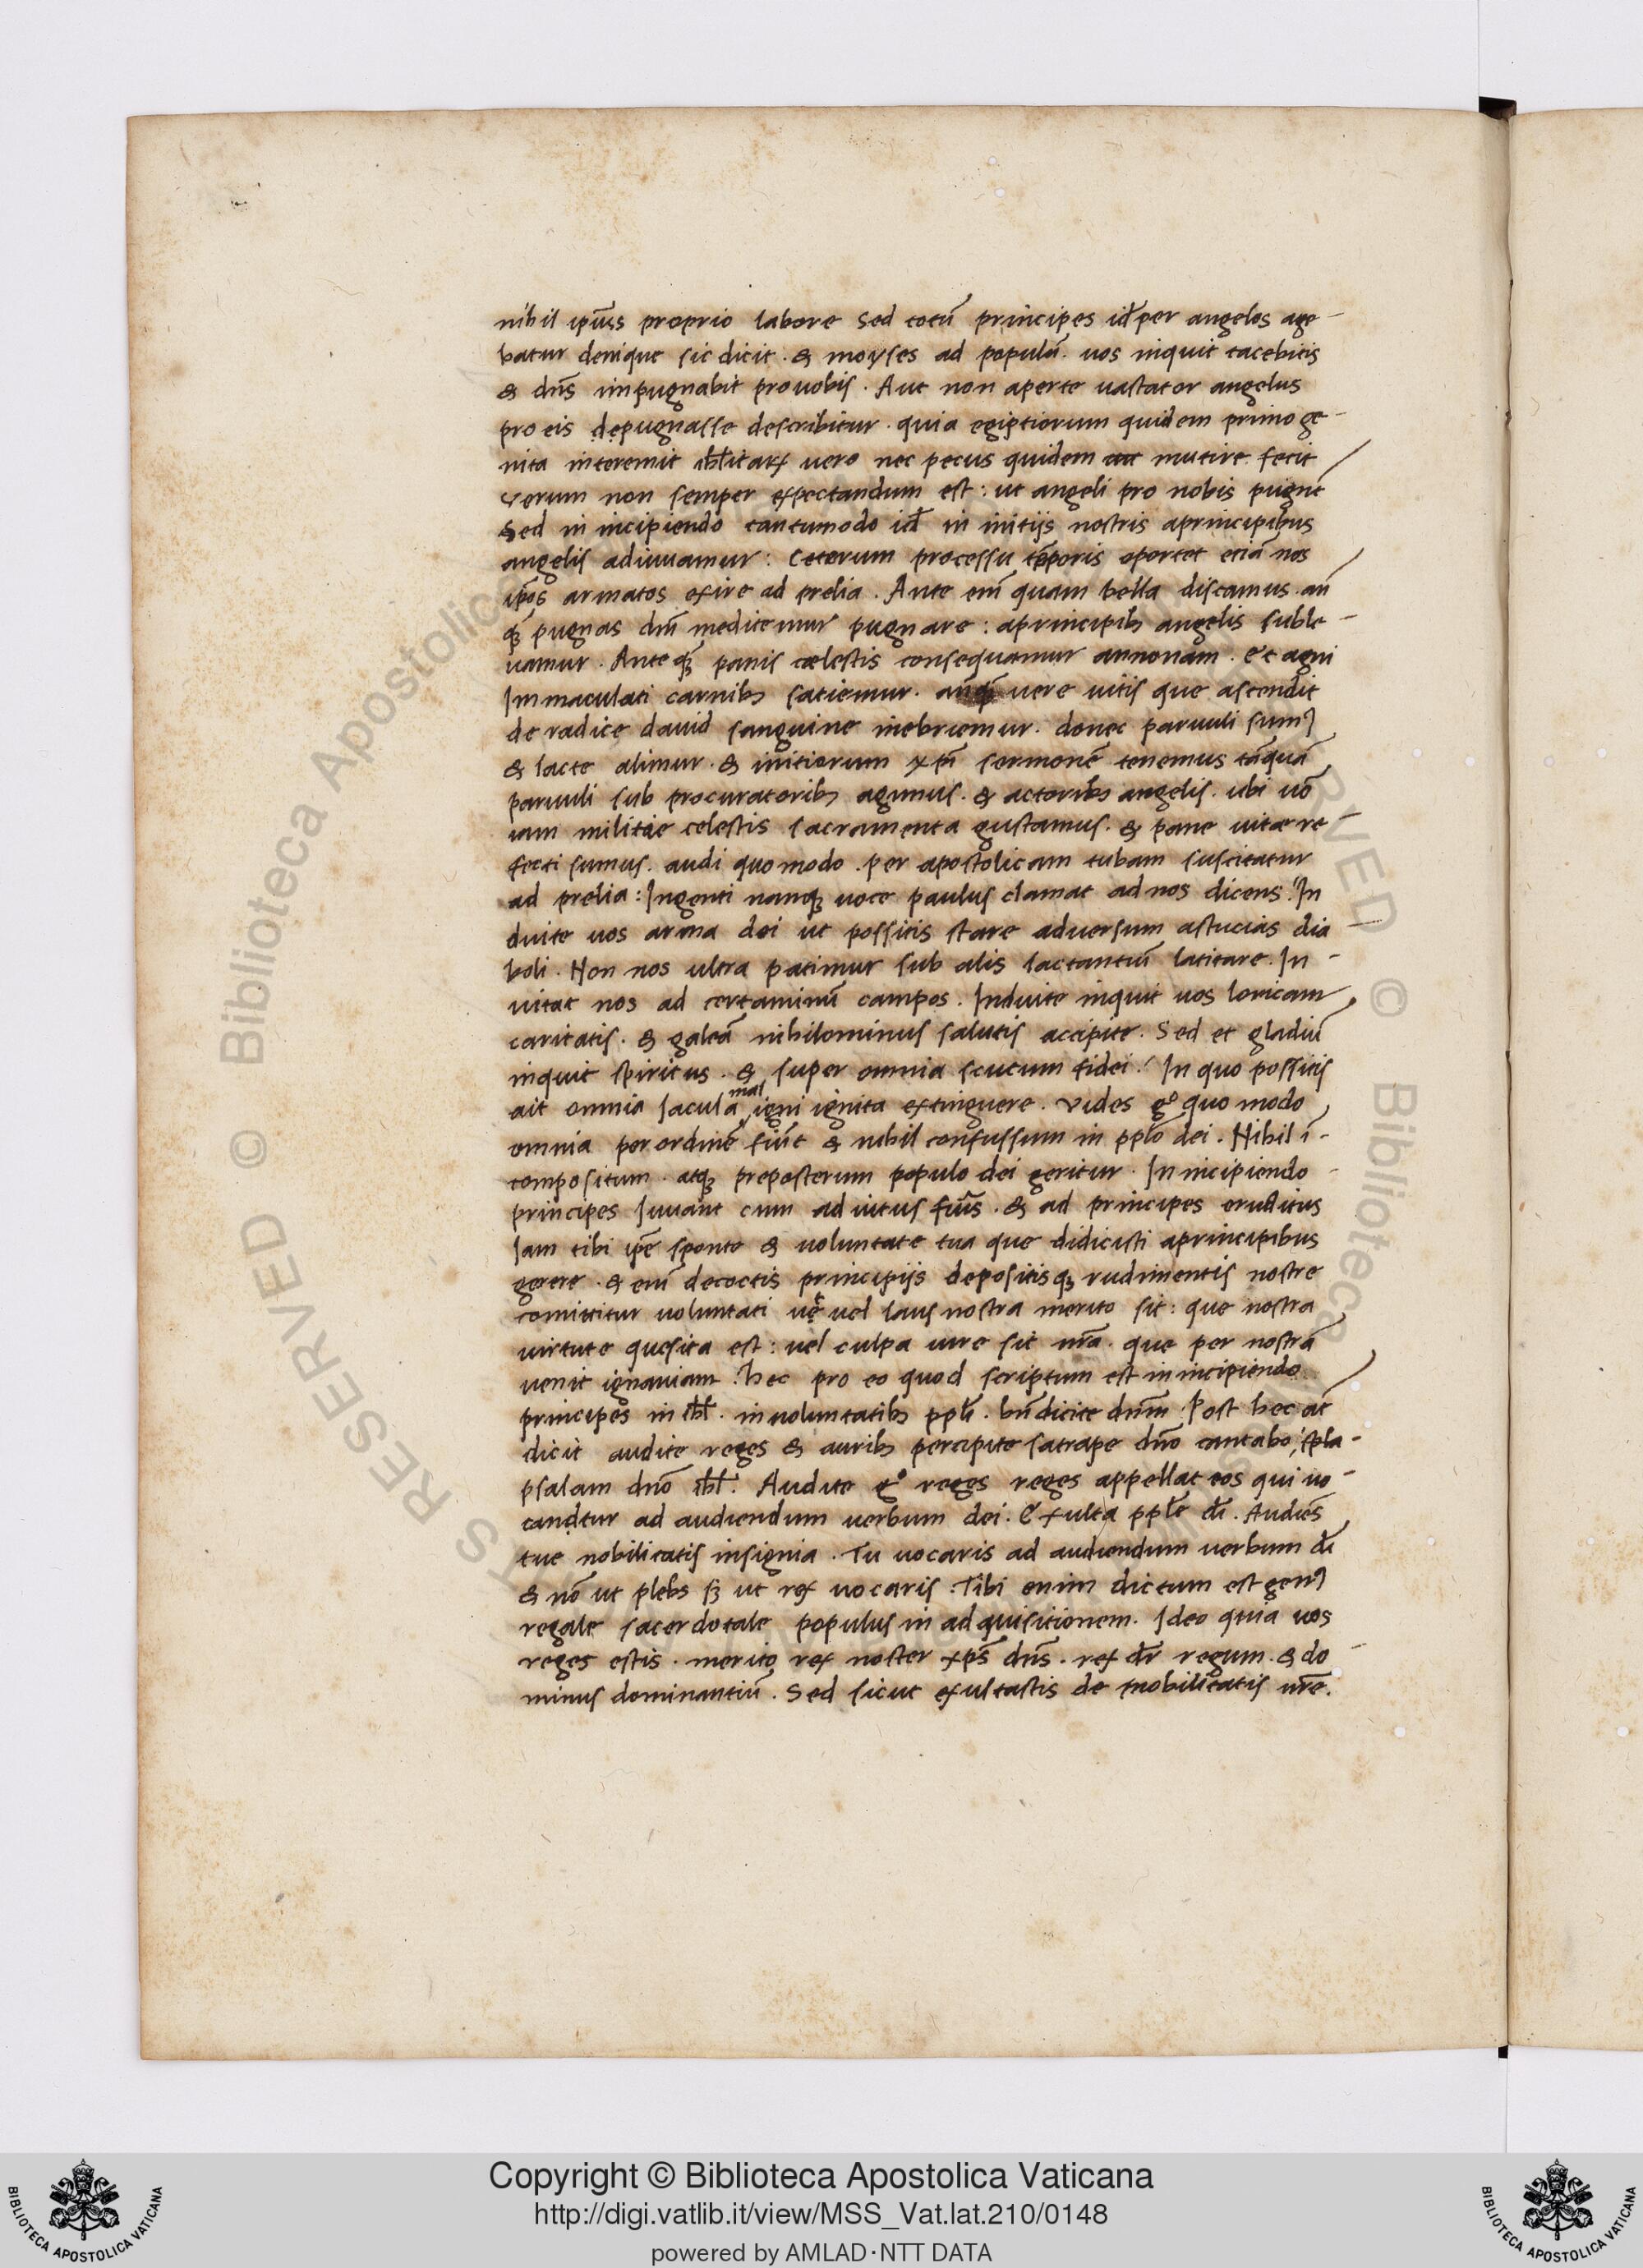 nihil ipsius proprio labore sed totũ principes id̃ per angelos age-
batur denique sic dicit . & moyses ad populũ . uos inquit tacebitis
& dñs impugnabit pro uobis . Aut non aperte uastator angelus
pro eis depugnasse describitur . quia egiptiorum quidem primo ge-
nita interemit isrl̃itarꝝ uero nec pecus quidem mutire fecit
verum non semper expectandum est : ut angeli pro nobis pugnẽt
Sed in incipiendo tantumodo id̃ in initijs nostris aprincipibus
angelis adiuuamur : Ceterum processu tẽporis oportet etiã nos
ip̃os armatos exire ad prelia . Ante em̃ quam bella discamus . añ
qʒ̃ pugnas dñi meditemur pugnare : aprincipibꝫ angelis suble-
uamur . Ante qʒ̃ panis cælestis consequamur annonam . et agni
Immaculati carnibꝫ satiemur . añqʒ̃ uere uitis que ascendit
de radice dauid sanguine inebriemur . donec paruuli sumꝰ
& lacte alimur . & initiorum xp̃i sermonẽ tenemus tãquã
paruuli sub procuratoribꝫ agimus . & actoribꝫ angelis . ubi uõ
iam militie celestis sacramenta gustamus . & pane uitæ re-
fecti sumus . audi quo modo per apostolicam tubam suscitatur
ad prelia : Ingenti nanqꝫ uoce paulus clamat ad nos dicens . In
duite uos arma dei ut possitis stare aduersum astucias dia-
boli . Non nos ultra patimur sub alis lactantiũ latitare . In-
uitat nos ad certaminũ campos . Induite inquit uos loricam
caritatis . & galeã nihilominus salutis accipite . Sed et gladiũ
inquit spiritus . & super omnia scutum fidei . In quo possitis
ait omnia Iacula mali igni ignita extinguere . vides gº quo modo
omnia per ordinẽ fiũt & nihil confussum in pplõ dei . Nihil ĩ-
compositum . atqꝫ preposterum populo dei geritur . In incipiendo-
principes Iuuant cum ad uitus fũis . & ad principes eruditus
Iam tibi ip̃e sponte & uoluntate tua que didicisti aprincipibus
gerere . & em̃ decoctis principijs depositisqꝫ rudimentis nostre
comittitur uoluntati ut vel laus nostra merito sit : que nostra
uirtute quesita est : uel culpa iure sit nr̃a . que per nostrã
uenit ignauiam . Hec pro eo quod scriptum est in incipiendo
principes in isrl̃ . in uoluntatibꝫ ppl̃i . bñdicite dnm̃ . Post hec aũt
dicit audite reges & auribꝫ percipite satrape dño cantabo, spla-
psalam dño isrl̃ . Audite gº reges reges appellat eos qui uo-
cantur ad audiendum uerbum dei . Exulta ppl̃e dĩ . Audiẽs
tue nobilitatis insignia . Tu uocaris ad audiendum uerbum dĩ
& nõ ut plebs sꝫ ut rex uocaris . Tibi enim dictum est genꝰ
regale sacerdotale populus in adquisitionem . Ideo quia uos
reges estis . merito rex noster xp̃s dñs . rex dr̃ regum . & do-
minus dominantiũ . Sed sicut exultastis de nobilitatis ur̃e .
Copyright © Biblioteca Apostolica Vaticana
http://digi.vatlib.it/view/MSS_Vat.lat.210/0148
powered by AMLAD·NTT DATA
BIBLIOTECA APOSTOLICA VATICANA
BIBLIOTECA APOSTOLICA VATICANA